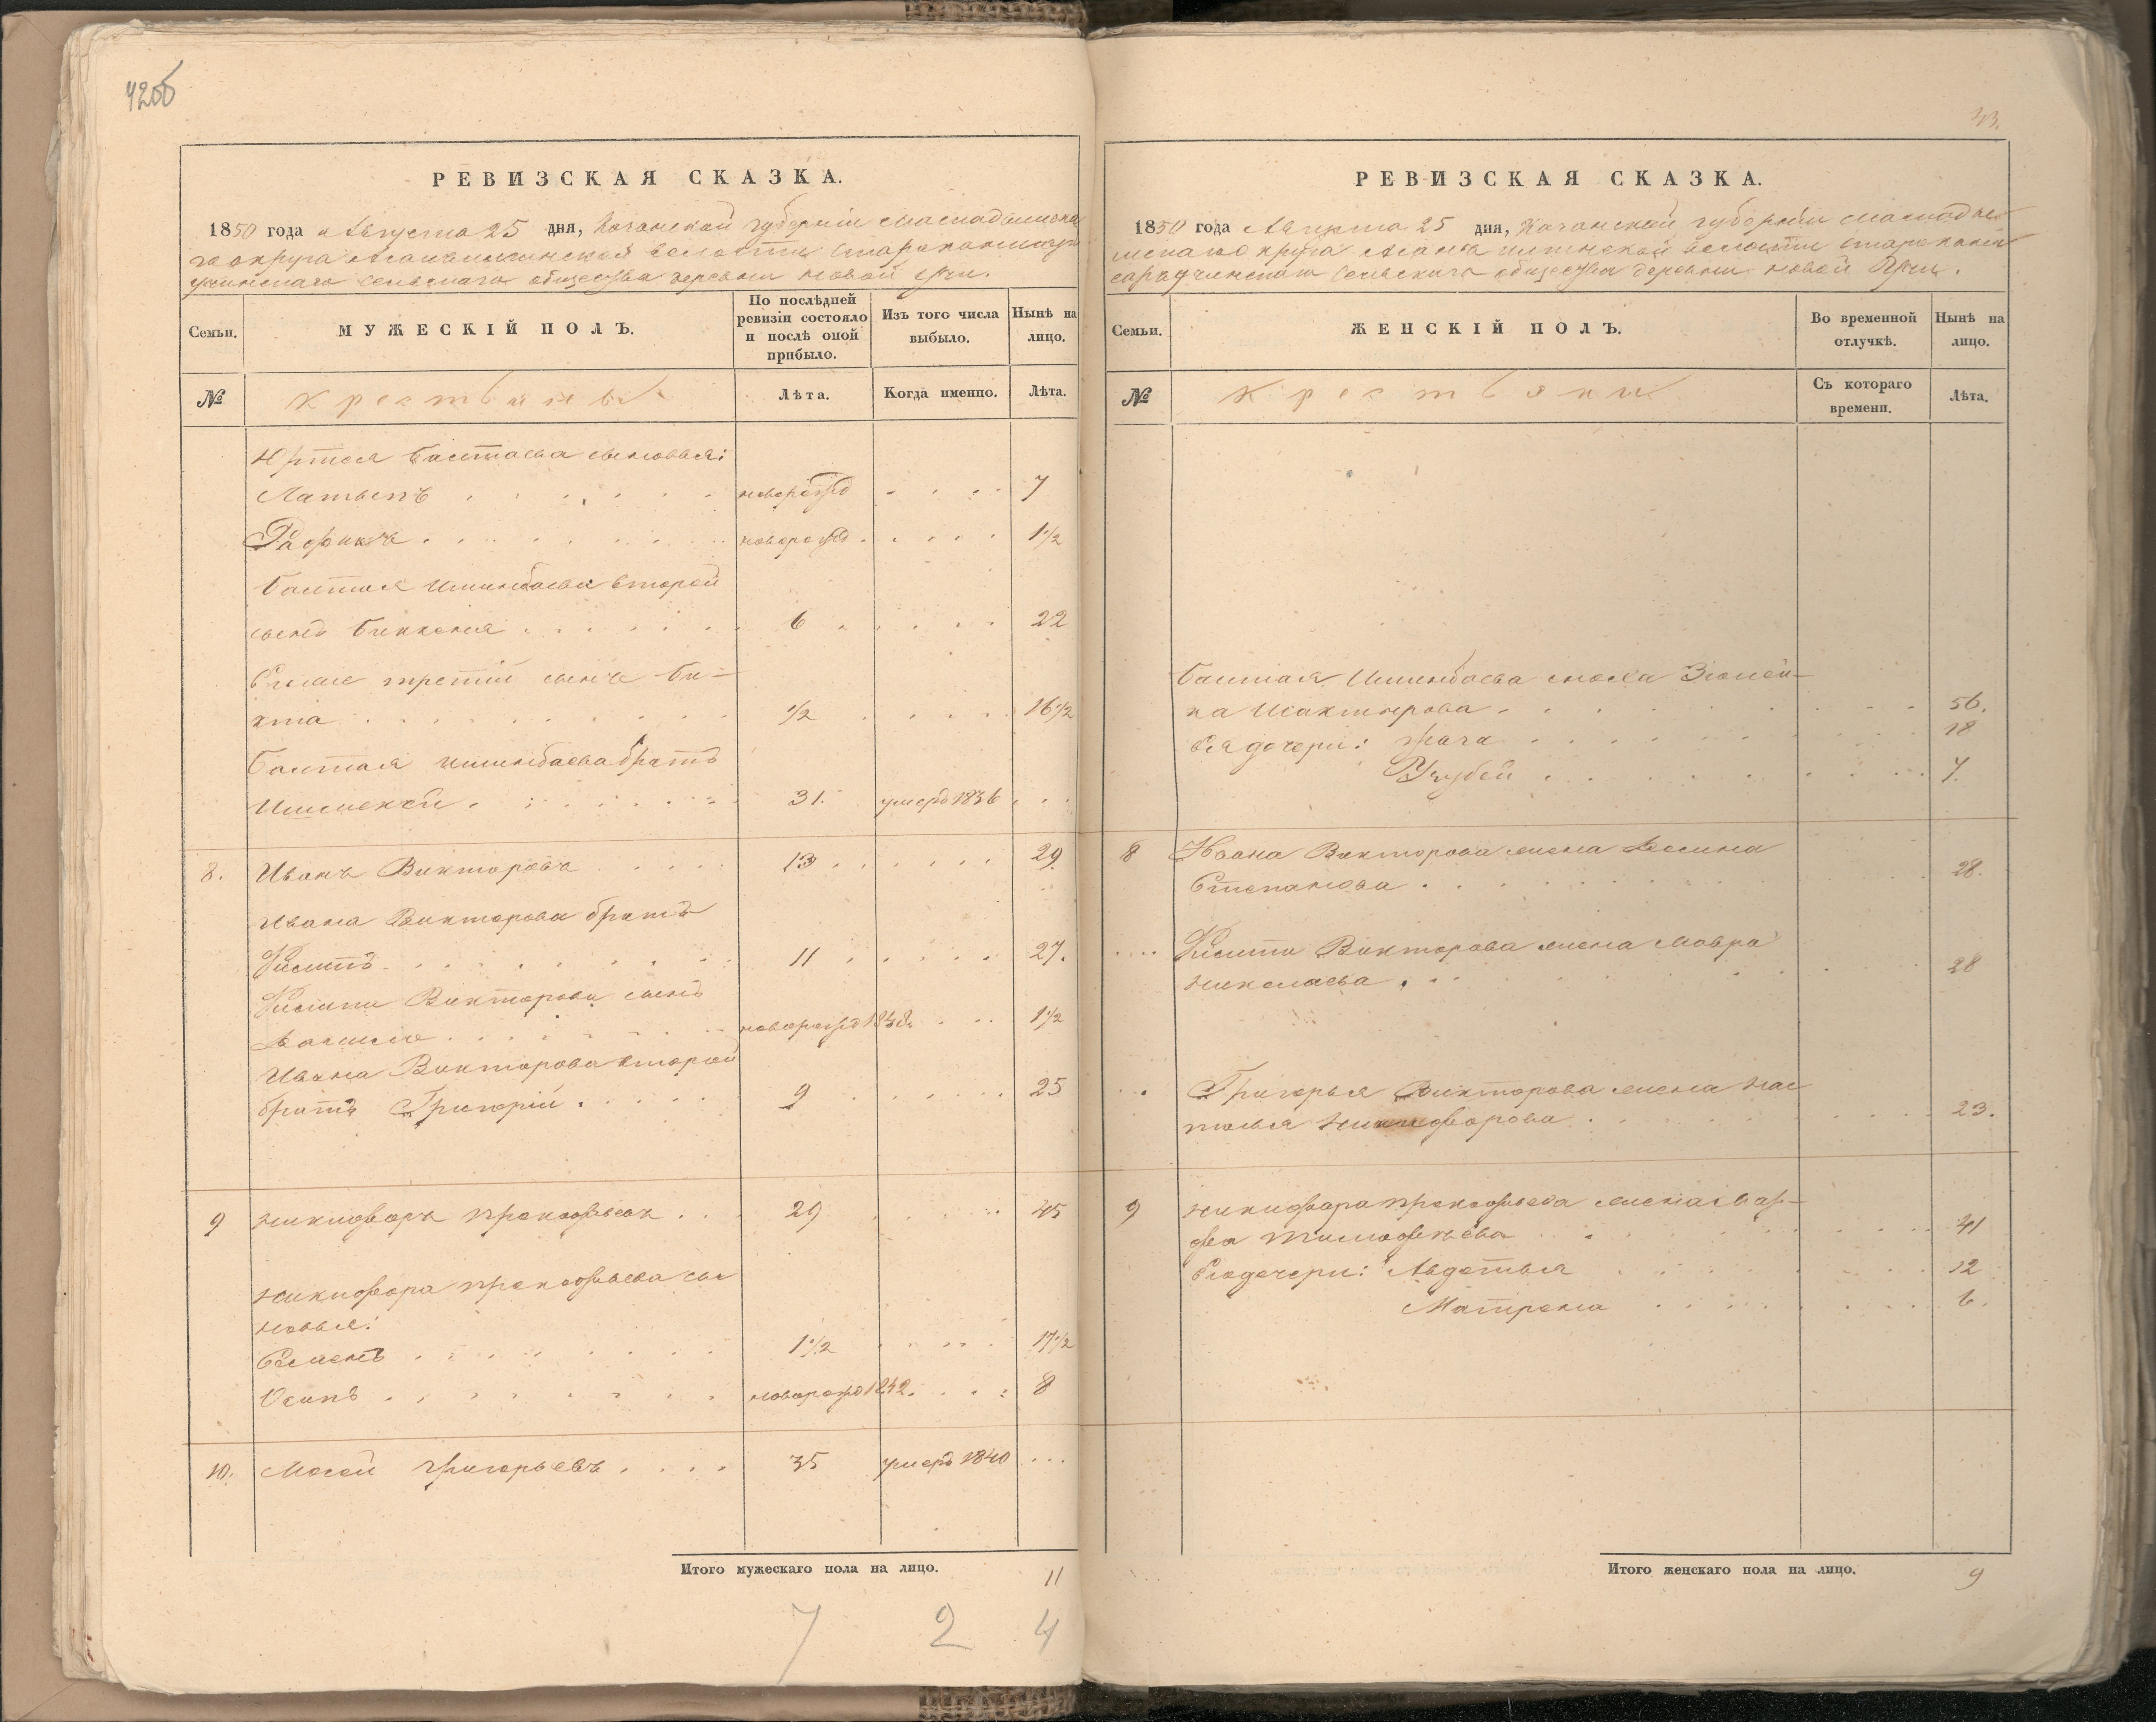 42об
РЕВИЗСКАЯ СКАЗКА.
1850 года Августа 25 дня, Казанской губерніи Мамадышска
го округа волости
сельскаго общества деревни новой Учи.
Семьи.
МУЖЕСКІЙ ПОЛЪ.
По послѣдней ревизіи состояло и послѣ оной прибыло.
Изъ того числа выбыло.
Нынѣ на лицо.
№
Крестьяне
Лѣта.
Когда именно.
Лѣта.
Баштаева сыновья:
Латыпъ новорожд 7
Рафикъ новорожд 1 1/2
Баштая Ишинбаева второй
сынъ 6 22
третій сынъ Би-
кта 1/2 16 1/2
Баштая Ишинбаева братъ
Ишмекей 31. умеръ 1836
8. Иванъ Викторовъ 13 29
Ивана Викторова братъ
Филипъ 11 27.
Филипа Викторова сынъ
Василій новорожд 1848 1 1/2
Ивана Викторова второй
братъ Григорій 9 25
9 Никифоръ Прокофьевъ 29 45
Никифора Прокофьева сы
новья:
Семенъ 1 1/2 17 1/2
Осипъ новорожд 1842. 8
10. Мосей Григорьевъ 35 умеръ 1840
Итого мужескаго пола на лицо. 11
7 2 4
43.
РЕВИЗСКАЯ СКАЗКА.
1850 года Августа 25 дня, Казанской губерніи Мамады
шскаго округа волости
сельскаго общества деревни новой Учи.
Семьи.
ЖЕНСКІЙ ПОЛЪ.
Во временной отлучкѣ.
Нынѣ на лицо.
№
Крестьяне
Съ котораго времени.
Лѣта.
Баштая Ишинбаева жена Зюлей-
ка 56.
Ея дочери: 18
7.
8 Ивана Викторова жена
Степанова 28.
Филипа Викторова жена Мавра
Николаева 28
Григорья Викторова жена На
талья Никифорова 23.
9 Никифора Прокофьева жена Мар-
фа Тимофеѣва 41
Его дочери: Авдотья 12
Матрена 6.
Итого женскаго пола на лицо. 9